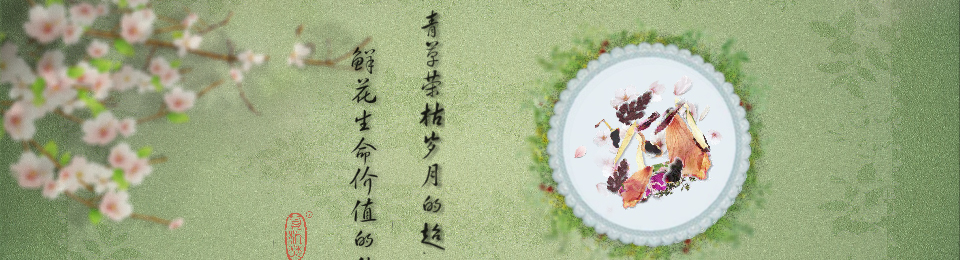 青草荣枯岁月的超
鲜花生命价值的